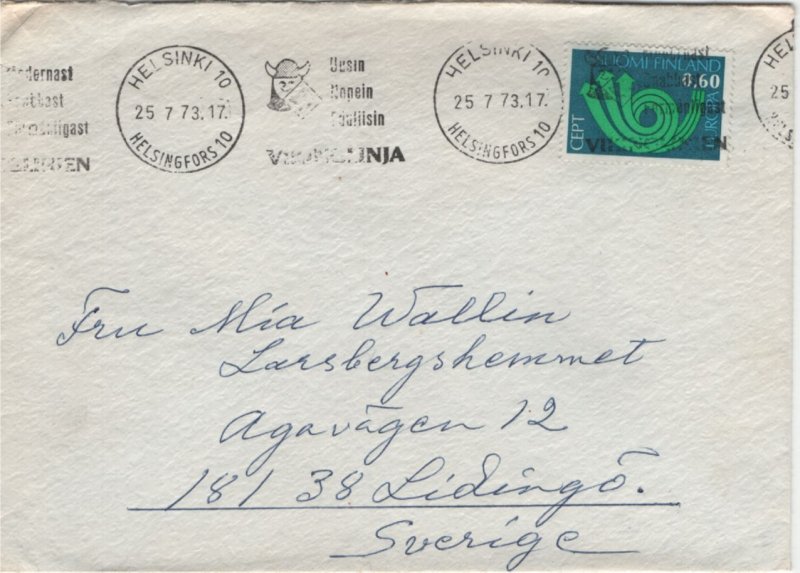 HELSINKI 10
25 7 73.17.
HELSINGFORS 10
Uusin
Nopein
Edullisin
VIKINGLINJA
HELSINKI 10
25 7 73.17.
HELSINGFORS 10
SUOMI FINLAND
0,60
CEPT
EUROPA
25
Fru Mia Wallin
Larsbergshemmet
Agavägen 12
181 38 Lidingö.
Sverige